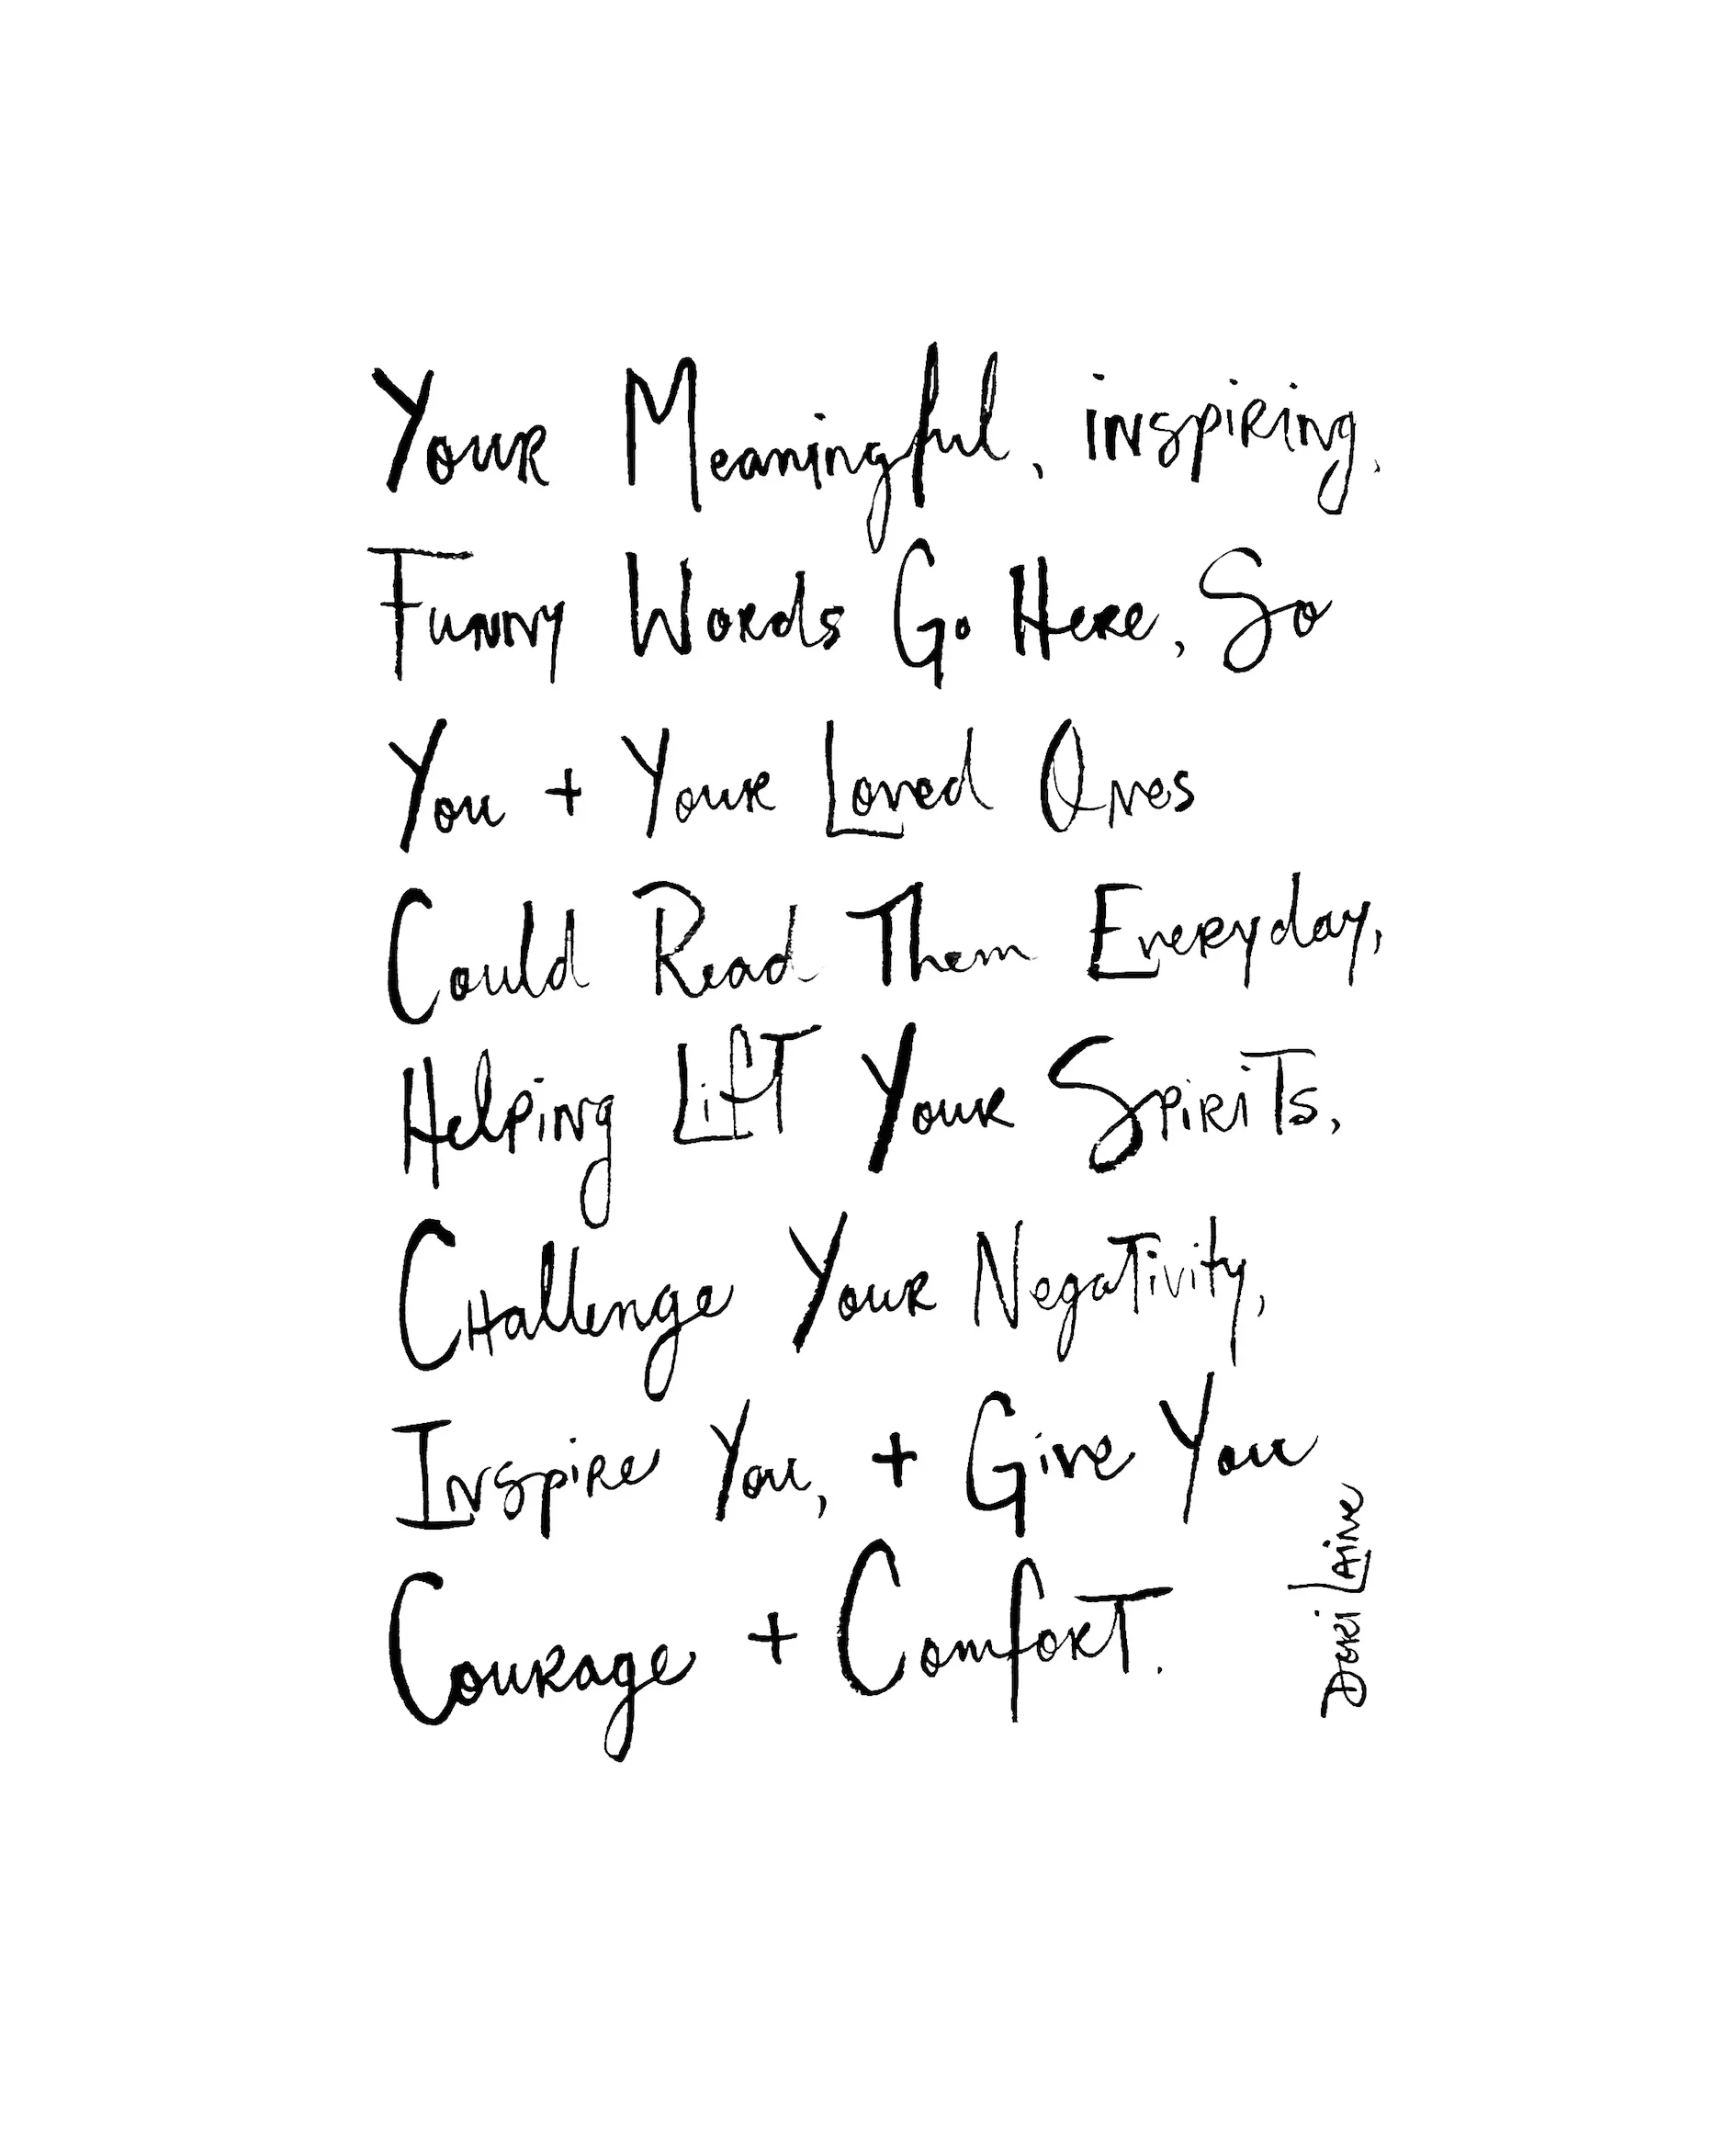 Your Meaningful, inspiring,
Funny Words Go Here, So
You + Your Loved Ones
Could Read Them Everyday,
Helping Lift Your Spirits,
Challenge Your Negativity,
Inspire You, + Give You
Courage + Comfort.
Dori Laine